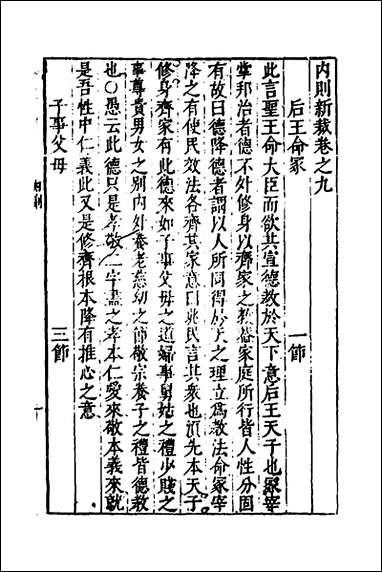 內則新裁卷之九
后王命冢　一節
此言聖王命大臣而欲其宣德教於天下意后王天子也冢宰
掌邦治者德不外修身以齊家之教蓋家庭所行皆人性分固
有故曰德降德者謂以人所同得於天之理立爲教法命冢宰
降之有使民效法各齊其家意曰兆民言其衆也須先本天子
修身齊家有此德來如子事父母之道婦事舅姑之禮少賤之
事尊貴男女之別內外養老慈幼之節敬宗養子之禮皆德教
也○愚云此德只是孝敬二字盡之孝本仁愛來敬本義來就
是吾性中仁義此又是修齊根本降有推心之意
子事父母　三節
內則